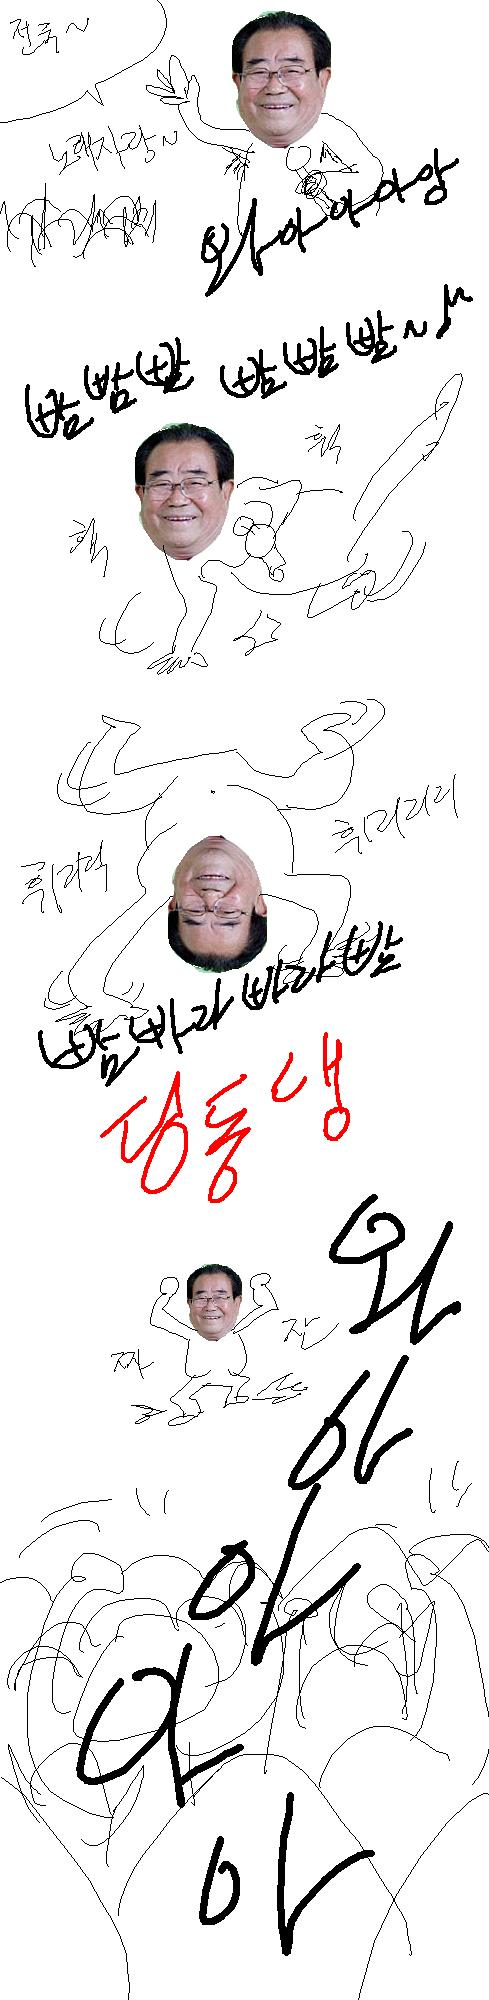 전국~
노래자랑~
와아아아앙
빰빰빨 빰빰빨~♪
휙
핵
휘리릭
휘리리리
빰빠라빠라빰
딩동댕
짜
잔
와
아
아
아
아